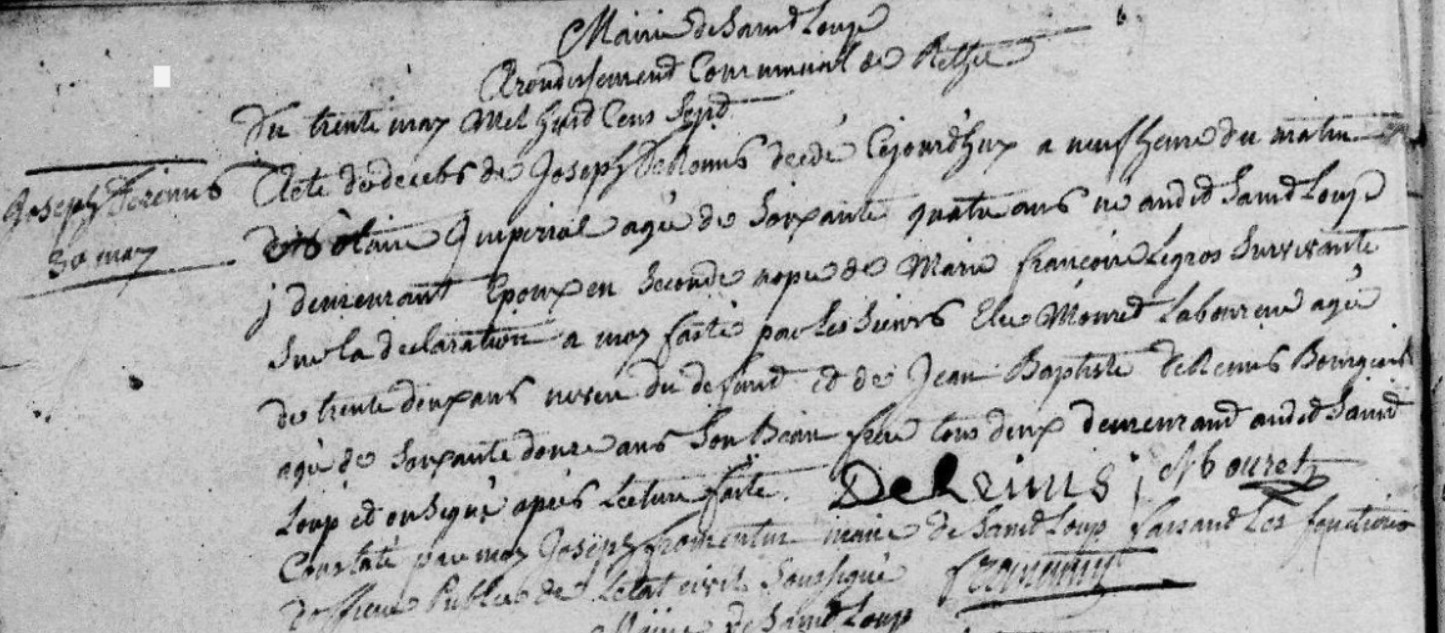 Mairie de Saind Loup
Arondissement Communal de Rethel
Du trente may Mil huid Cens Sepd
Acte de decebs de Joseph DeRemis decédé Cejourd'huy a neuf heure du matin
Joseph Deremis
30 may
notaire Imperial agée de Soixante quatre ans né audid Saind Loup
y demeurant Epoux en Seconde nopce de Marie francoise Legros Survivante
Sur la declaration a moy faite par les Sieurs Elie Mouret Laboureur agée
de trente deux ans neveu du defund et de Jean Baptiste DeRemis Bourgeois
agée de Soixante douze ans Son Beau frere tous deux demeurand audid Saind
Loup et onSigné apres Lecture faite. DeRemis ; Mouret
Constaté par moy Joseph fromentin maire de Saind Loup faisand Les fonctions
D'officier Public de Letat civil Soussigné fromentin
Mairie de Saind Loup